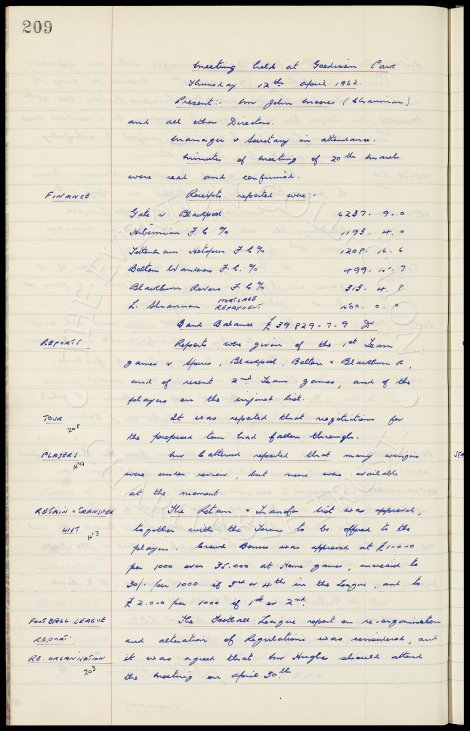 209
Meeting held at Goodison Park
Thursday 12th April 1962.
Present:- Mr John Moores (Chairman)
and all other Directors.
Manager & Secretary in attendance.
Minutes of Meeting of 20th March
were read and confirmed.
FINANCE. Receipts reported were:-
Gate v Blackpool 6237. 9. 0
Hibernian F.C. % 1193. 4. 0
Tottenham Hotspur F.C. % 1208. 16. 6
Bolton Wanderers F.C. % 499. 15. 7
Blackburn Rovers F.C. % 313. 4. 8
L. Shannon MORTGAGE REPAYMENT 450. 0. 0
Bank Balance £39,829-7-9 Dr
REPORTS Reports were given of the 1st Team
games v Spurs, Blackpool, Bolton & Blackburn R,
and of recent 2nd Team games, and of the
players on the injured list.
TOUR It was reported that negotiations for
208 the proposed tour had fallen through.
PLAYERS Mr Catterick reported that many wingers
were under review, but none were available
at the moment.
RETAIN & TRANSFER The Retain & Transfer list was approved,
LIST together with the Terms to be offered to the
players. Crowd Bonus was approved at £1-0-0
per 1000 over 35,000 at Home games, increased to
30/- per 1000 if 3rd or 4th in the League, and to
£2.0.0 per 1000 if 1st or 2nd.
FOOTBALL LEAGUE The Football League report on re-organisation
REPORT. and alteration of Regulations was considered, and
RE. ORGANISATION it was agreed that Mr Hughes should attend
203 the Meeting on April 30th